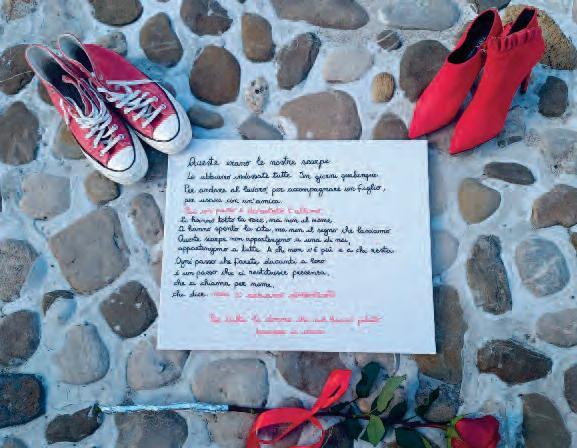 Queste erano le nostre scarpe.
Le abbiamo indossate tutte. In giorni qualunque.
Per andare al lavoro, per accompagnare un figlio,
per uscire con un'amica.
Poi un passo è diventato l'ultimo.
Ci hanno tolto la voce, ma non il nome.
Ci hanno spento la vita, ma non il segno che lasciamo.
Queste scarpe non appartengono a una di noi,
appartengono a tutte. A chi non c'è più e a chi resta.
Ogni passo che farete davanti a loro
è un passo che ci restituisce presenza,
che ci chiama per nome,
che dice:
Per tutte le donne che non hanno potuto